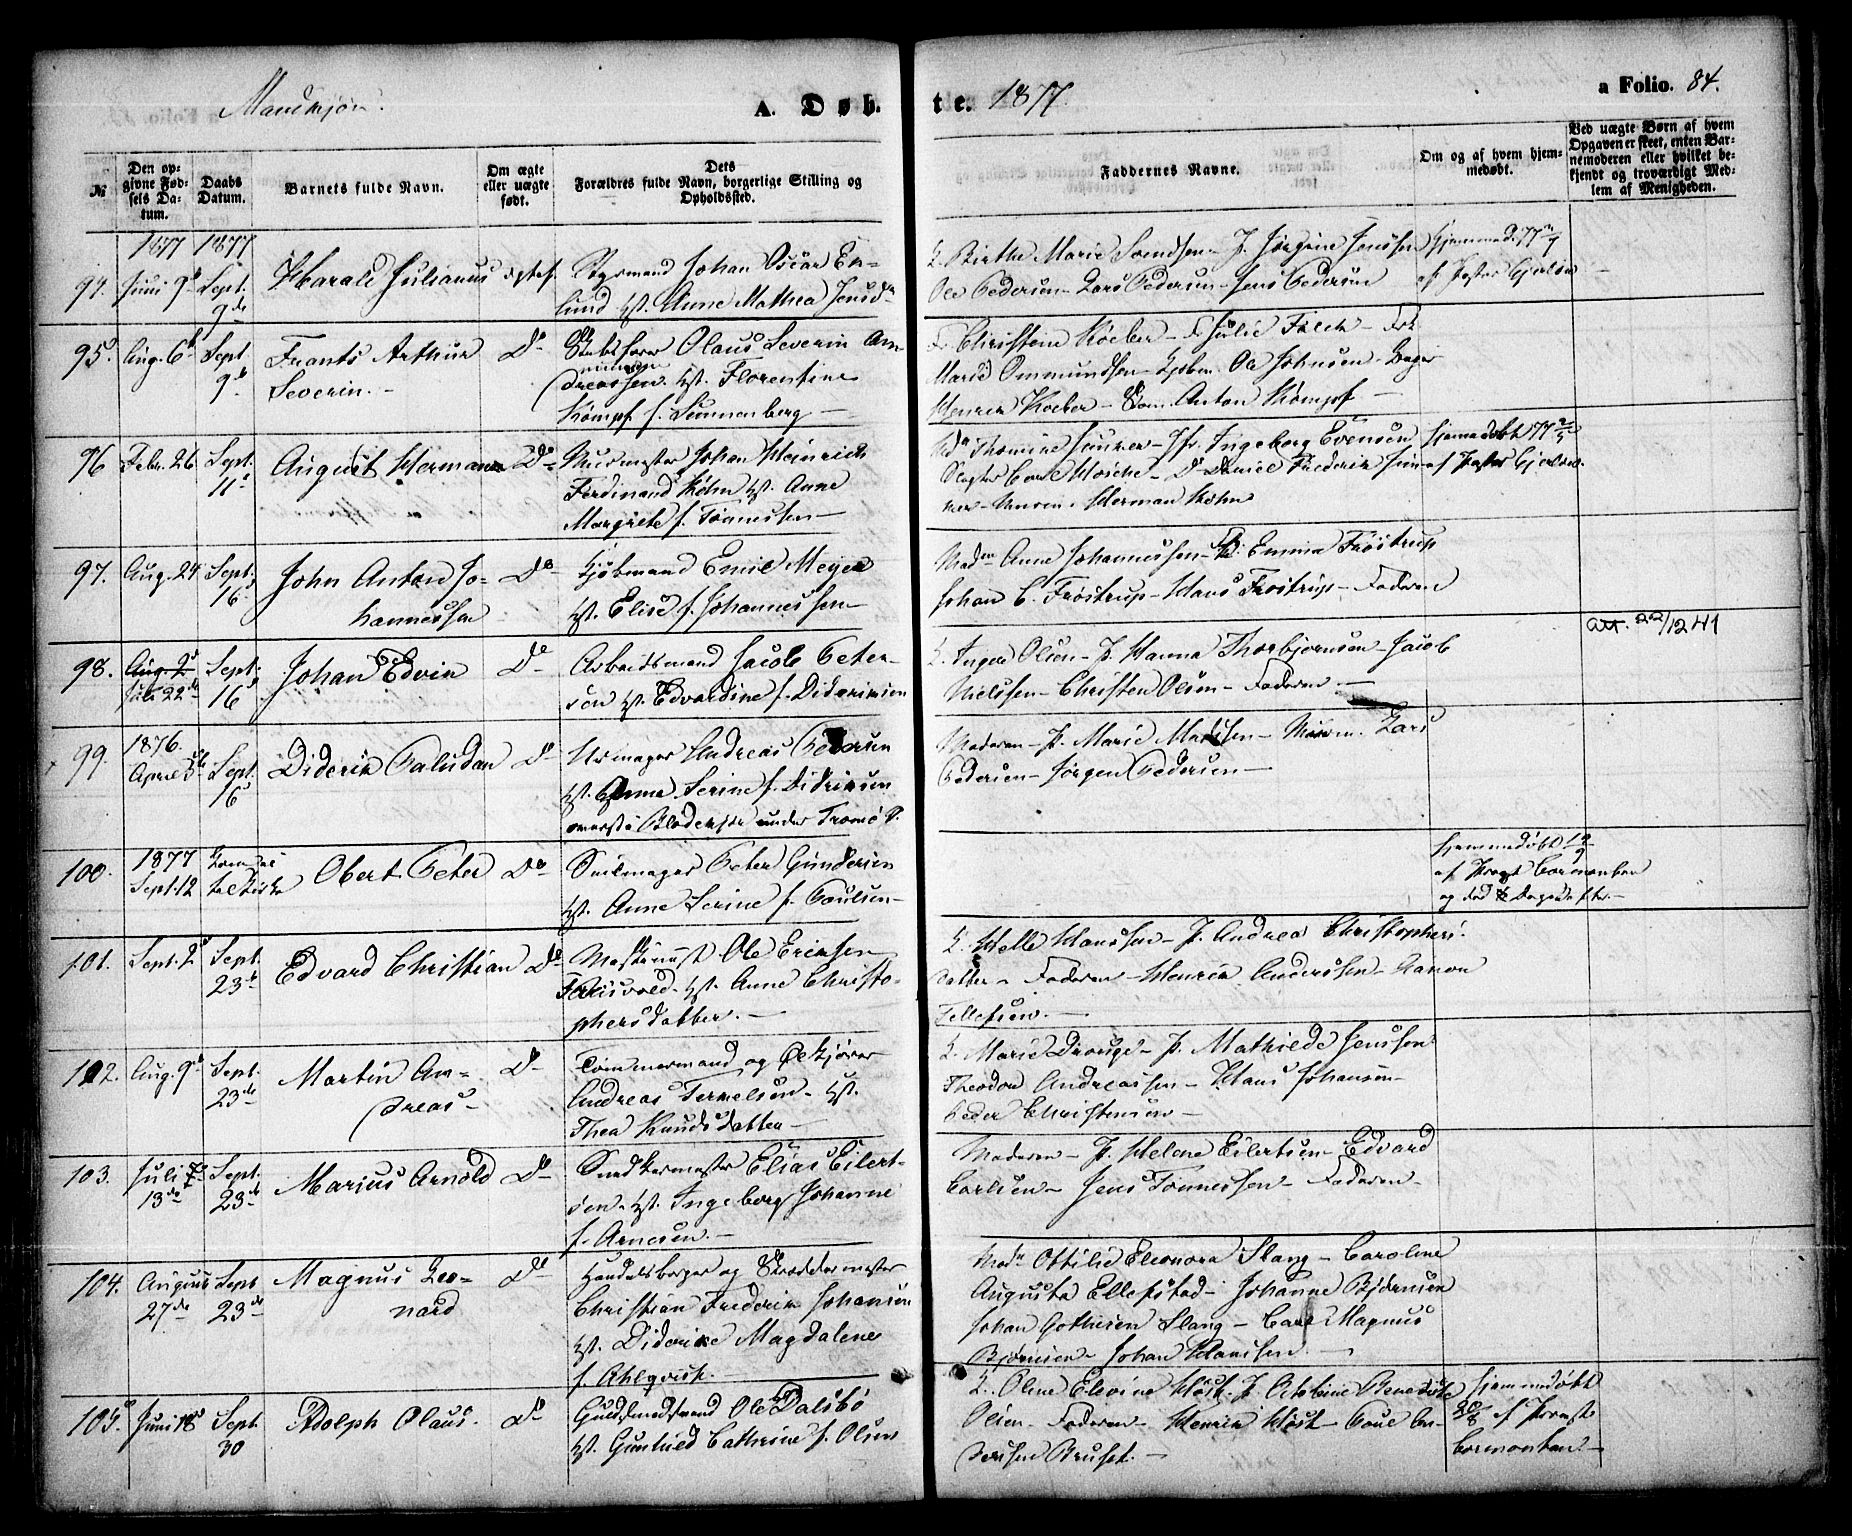 Mandkjøn.
A. Døbte. 1877.
a Folio. 84.
№
Den opgivne Fødsels Datum.
Daabs Datum.
Barnets fulde Navn.
Om ægte eller uægte født.
Dets Forældres fulde Navn, borgerlige Stilling og Opholdssted.
Faddernes Navne.
Om og af hvem hjemmedøbt.
Ved uægte Børn af hvem Opgaven er skeet, enten Barnemoderen eller hvilket bekjendt og troværdigt Medlem af Menigheden.
1877 1877
94. Juni 9 Sept. 9de Harald Julianus ægtef.
Styrmand Johan Oscar Enlund Hst. Anne Mathea Jensd.
K. Birthe Marie Svendsen - P. Jørgine Jenssen
Ole Pedersen - Lars Pedersen - Jens Pedersen
95. Aug. 6 Sept. 9de Frants Arthur
Severin. -
Do
Olaus Severin Andreassen. Hst. Florentine
Kømpf f. Sonnenberg -
Christine Kocher - Fr. Julie Falck - Frk
Marie Ommundsen - Kjøbm. Ole Johnsen - Bager
Henrik Kocher - Anton Kømpf -
96 Febr. 26 Sept. 11 August Herman Do
Murmester Johan Heinrich
Ferdinand Køhn Hst. Anne
Margrete f. Tønnessen -
Thomine - Jfr. Ingeborg Evensen
Slagter Carl - Daniel Frederik
- Herman Køhn
Hjemmedøbt 77
af Pastor
97. Aug. 24 Sept. 16 John Anton Johannessen Do
Kjøbmand Emil Meyer
Hst. Elise f. Johannessen -
Madm Anne Johannessen - Emma Frøstrup
Johan C. Frøstrup - Hans Frøstrup - Faderen
98. Aug. 2 Juli 22de Sept. 16 Johan Edvin Do
Arbeidsmand Jacob Petersen Hst. Edvardine f. Didriksen
K. Inger Olsen - P. Hanna Thorbjørnsen - Jacob
Nielssen - Christen Olsen - Faderen -
Att. 22/12 41
99. 1876. April 5te Sept. 16 Diderik Paludan Do
Urmager Andreas Pedersen
Hst. Anna Serine f. Didriksen
under Tromø S.
Moderen - P. Marie Madssen - Lars
Pedersen - Jørgen Pedersen -
100. 1877 Sept. 12 Obert Peter Do
Seilmager Peter Gundersen
Hst. Anne Serine f. Poulsen -
Hjemmedøbt
af Provst Cormontan
og død Dagen efter. -
101. Sept. 2 Sept. 23de Edvard Christian Do
Maskinist Ole Eriksen
Hst. Anne Christophersdatter. -
K. Helle Hanssen - P. Andrea Christophersdatter - Faderen - Henrik Anderssen - Aanon
Tellefsen. -
102. Aug. 9 Sept. 23de Martin Andreas - Do
Tømmermand og
Andreas Terkelsen - Hst.
Thea Knudsdatter -
K. Marie Drouge - P. Mathilde Jenssen
Theodor Andreassen - Hans Johansen -
Peder Christensen -
103. Juli 13de Sept. 23de Marius Arnold Do
Snedkermester Elias Eilertsen. Hst. Ingeborg Johanne
f. Arnesen. -
Moderen - P. Helene Eilertsen - Edvard
Carlsen - Jens Tønnessen - Faderen -
104. August 27de Sept. 23de Magnus Leonard Do
Handelsborger og Skreddermester
Christian Frederik Johansen
Hst. Didrike Magdalene
f. Ahlqvist. -
Madm Ottilie Eleonora Slang - Caroline
Augusta Ellefstad - Johanne Bjørnsen
Johan Gothersen Slang - Carl Magnus
Bjørnsen - Johan Hanssen. -
105. Juni 18 Sept. 30 Adolph Olaus. Do
Ole Dalsbø
Hst. Gunhild Cathrine f. Olsen
K. Olene Elevine Høst - P. Octobine Benedicte
Olsen - Faderen - Henrik Høst - Poul Andersen Bruset. -
Hjemmedøbt
20/8 af Provst
Cormontan. -